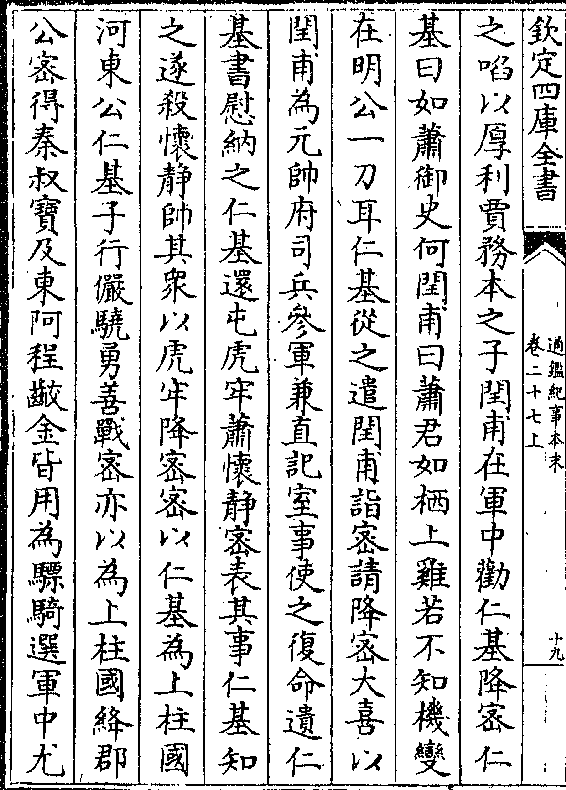 欽定四庫全書
通鑑紀事本末
卷二十七上
十九
之啗以厚利賈務本之子閏甫在軍中勸仁基降密仁
基曰如蕭御史何閏甫曰蕭君如栖上雞若不知機變
在明公一刀耳仁基從之遣閏甫詣密請降密大喜以
閏甫為元帥府司兵參軍兼直記室事使之復命遺仁
基書慰納之仁基還屯虎牢蕭懷靜密表其事仁基知
之遂殺懷靜帥其衆以虎牢降密密以仁基為上柱國
河東公仁基子行儼驍勇善戰密亦以為上柱國絳郡
公密得秦叔寶及東阿程齩金皆用為驃騎選軍中尤